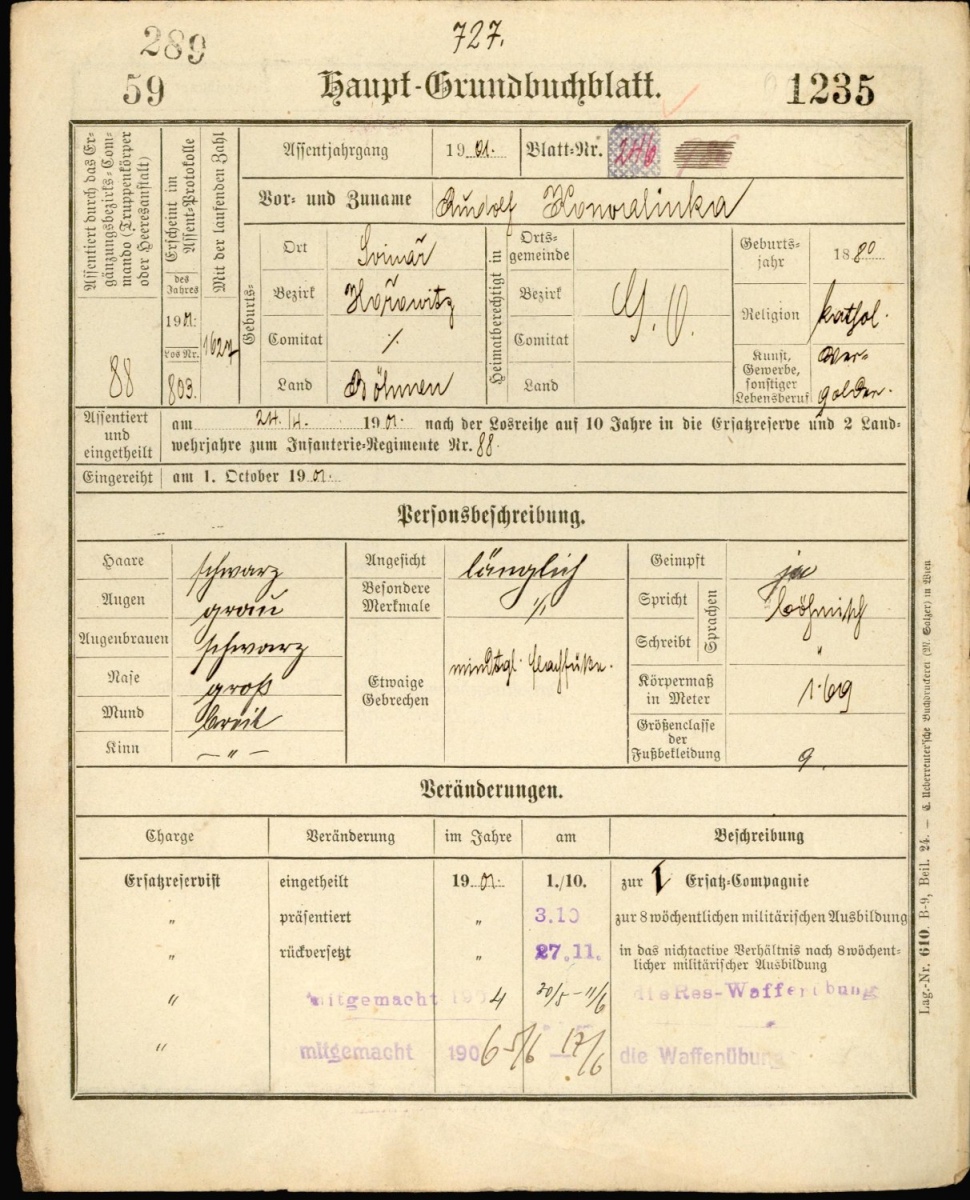 289
727.
59
Haupt-Grundbuchblatt.
1235
Assentiert durch das Ergänzungsbezirks-Commando (Truppenkörper oder Heeresanstalt)
88
Erscheint im Assent-Protokolle
des Jahres
1901.
Los Nr.
803.
Mit der laufenden Zahl
1627
Assentjahrgang 1901. Blatt-Nr. 246
Vor- und Zuname Rudolf
Geburts-
Ort
Bezirk Hořowitz
Comitat ∕.
Land Böhmen
Heimatberechtigt in
Orts-
gemeinde
Bezirk
Comitat
Land
G. O.
Geburts-
jahr 1880
Religion kathol.
Kunst,
Gewerbe,
sonstiger
Lebensberuf
Ver-
golder.
Assentiert
und
eingetheilt
am 24./4. 1901. nach der Losreihe auf 10 Jahre in die Ersatzreserve und 2 Land-
wehrjahre zum Infanterie-Regimente Nr. 88.
Eingereiht am 1. October 1901.
Personsbeschreibung.
Haare schwarz
Augen grau
Augenbrauen schwarz
Nase groß
Mund breit
Kinn — „ —
Angesicht länglich
Besondere
Merkmale ∕.
Etwaige
Gebrechen
mindtgl. Flachfüße.
Geimpft ja
Sprachen
Spricht böhmisch
Schreibt „
Körpermaß
in Meter 1·69
Größenclasse
der
Fußbekleidung 9.
Veränderungen.
Charge Veränderung im Jahre am Beschreibung
Ersatzreservist eingetheilt 1901. 1./10. zur 1 Ersatz-Compagnie
„ präsentiert „ 3.10 zur 8 wöchentlichen militärischen Ausbildung
„ rückversetzt „ 27.11. in das nichtactive Verhältnis nach 8 wöchent-
licher militärischer Ausbildung
„ mitgemacht 1904 20/5 – 11/6 die Res-Waffenübung
„ mitgemacht 1906 5/6 — 17/6 die Waffenübung
Lag.-Nr. 610. B-9, Beil. 24. — C. Ueberreuter'sche Buchdruckerei (M. Salzer) in Wien